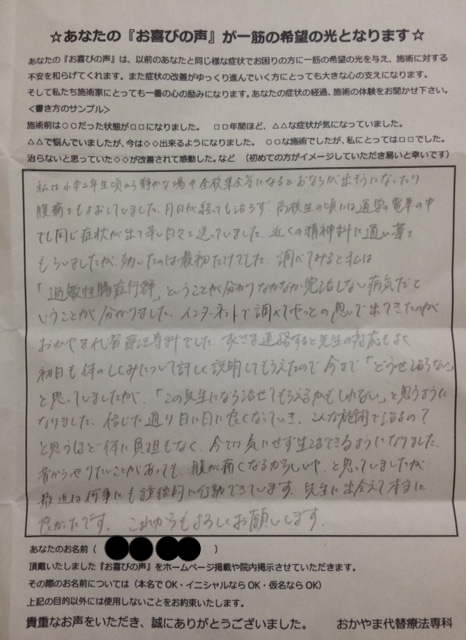 ☆あなたの『お喜びの声』が一筋の希望の光となります☆
あなたの『お喜びの声』は、以前のあなたと同じ様な症状でお困りの方に一筋の希望の光を与え、施術に対する
不安を和らげてくれます。また症状の改善がゆっくり進んでいく方にとっても大きな心の支えになります。
そして私たち施術家にとっても一番の心の励みになります。あなたの症状の経過、施術の体験をお聞かせ下さい。
<書き方のサンプル>
施術前は○○だった状態が□□になりました。 □□年間ほど、△△な症状が気になっていました。
△△で悩んでいましたが、今は○○出来るようになりました。 ○○な施術でしたが、私にとっては□□でした。
治らないと思っていた○○が改善されて感動した。など (初めての方がイメージしていただき易いと幸いです)
私は小学二年生頃から静かな場や全校集会等になるとおならが出そうになったり
腹痛をもよおしていました。月日が経っても治らず、高校生の頃には通学の電車の中
でも同じ症状が出て辛い日々を送っていました。近くの精神科に通い薬を
もらいましたが効いたのは最初だけでした。調べてみると私は
「過敏性腸症候群」ということが分かりなかなか完治しない病気だと
いうことが分かりました。インターネットで調べてやっとの思いで出てきたのが
おかやま代替療法専科でした。すぐさま連絡すると先生の対応もよく
初日も体のしくみについて詳しく説明してもらえたので今まで「どうせ治らない」
と思っていましたが、「この先生になら治せてもらえるかもしれない」と思うように
なりました。信じた通り日に日に良くなっていき、こんな施術で治るの?
と思うほど体に負担もなく、今では気にせず生活できるようになりました。
昔からやりたいことがあっても、腹が痛くなるからいいや、と思っていましたが
最近は何事にも積極的に行動できています。先生に出会えて本当に
良かったです。これからもよろしくお願いします。
あなたのお名前( )
頂戴いたしました『お喜びの声』をホームページ掲載や院内掲示させていただきます。
その際のお名前については(本名でOK・イニシャルならOK・仮名ならOK)
上記の目的以外には使用しないことをお約束いたします。
貴重なお声をいただき、誠にありがとうございました。 おかやま代替療法専科